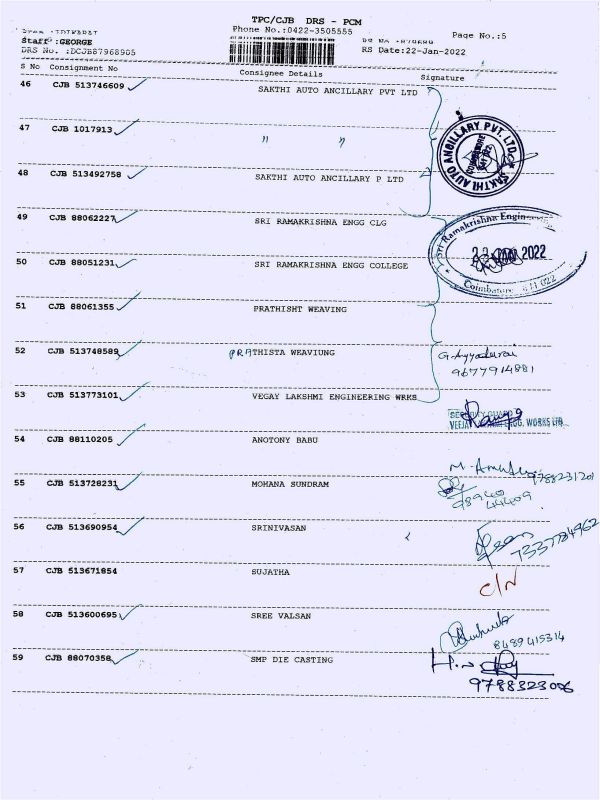 TPC/CJB DRS - PCM
Phone No.:0422-3505555
Page No.:5
Staff :GEORGE
DRS No. :DCJB87968905
RS Date:22-Jan-2022
S No Consignment No Consignee Details Signature
46 CJB 513746609 SAKTHI AUTO ANCILLARY PVT LTD
SAKTHI AUTO ANCILLARY PVT. LTD.
COIMBATORE
47 CJB 1017913 " "
48 CJB 513492758 SAKTHI AUTO ANCILLARY P LTD
49 CJB 88062227 SRI RAMAKRISHNA ENGG CLG
Sri Ramakrishna Engineering
22 JAN 2022
Coimbatore
50 CJB 88051231 SRI RAMAKRISHNA ENGG COLLEGE
51 CJB 88061355 PRATHISHT WEAVING
52 CJB 513748589 PRATHISTA WEAVIUNG G. Ayyadurai
9677914881
53 CJB 513773101 VEGAY LAKSHMI ENGINEERING WRKS
SECURITY GUARD
ENGG. WORKS
54 CJB 88110205 ANOTONY BABU
9788231201
55 CJB 513728231 MOHANA SUNDRAM
98940
44409
56 CJB 513690954 SRINIVASAN
7337784962
57 CJB 513671854 SUJATHA C/N
58 CJB 513600695 SREE VALSAN
8489415314
59 CJB 88070358 SMP DIE CASTING
9788323006